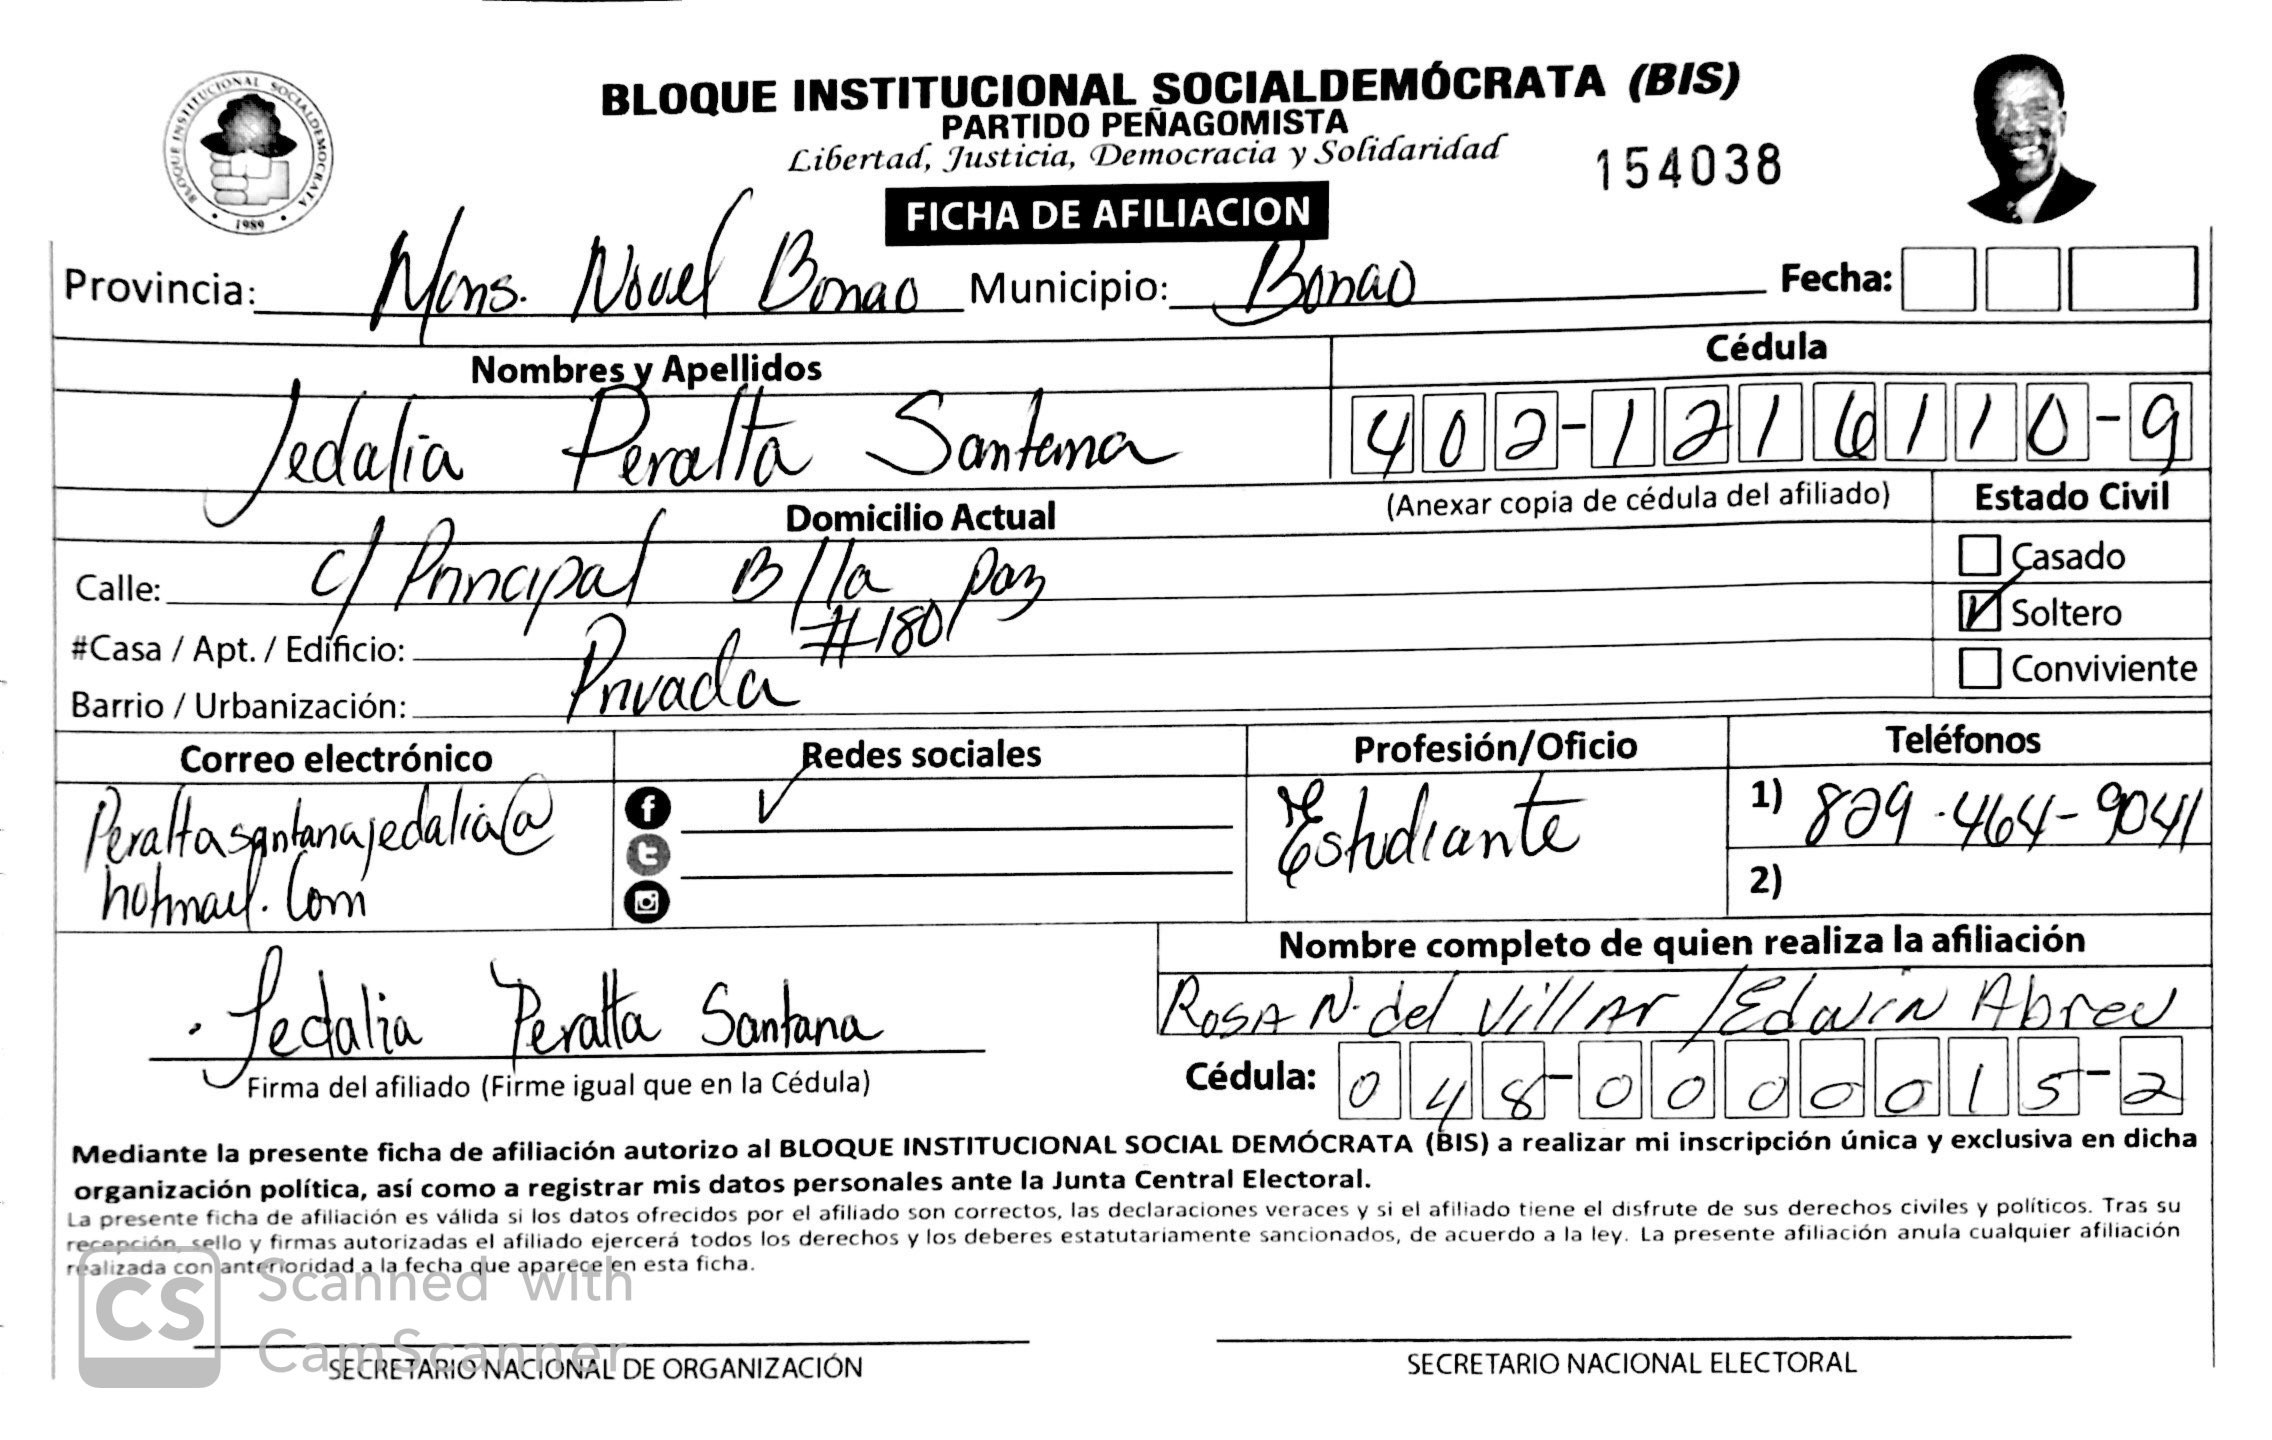 BLOQUE INSTITUCIONAL SOCIALDEMÓCRATA (BIS)
PARTIDO PEÑAGOMISTA
Libertad, Justicia, Democracia y Solidaridad
154038
BLOQUE INSTITUCIONAL SOCIALDEMOCRATA
1989
FICHA DE AFILIACION
Provincia: Mons. Nouel Bonao Municipio: Bonao Fecha:
Nombres y Apellidos Cédula
Jedalia Peralta Santana 402-1216110-9
Domicilio Actual (Anexar copia de cédula del afiliado) Estado Civil
Calle: c/ Principal B/la paz Casado
#Casa / Apt. / Edificio: #180 Soltero
Barrio / Urbanización: Privada Conviviente
Correo electrónico Redes sociales Profesión/Oficio Teléfonos
Peraltasantanajedalia@ Estudiante 1) 829-464-9041
hotmail.com 2)
Nombre completo de quien realiza la afiliación
Rosa N. del Villar / Edwin Abreu
Jedalia Peralta Santana
Firma del afiliado (Firme igual que en la Cédula) Cédula: 048-0000015-2
Mediante la presente ficha de afiliación autorizo al BLOQUE INSTITUCIONAL SOCIAL DEMÓCRATA (BIS) a realizar mi inscripción única y exclusiva en dicha
organización política, así como a registrar mis datos personales ante la Junta Central Electoral.
La presente ficha de afiliación es válida si los datos ofrecidos por el afiliado son correctos, las declaraciones veraces y si el afiliado tiene el disfrute de sus derechos civiles y políticos. Tras su
recepción, sello y firmas autorizadas el afiliado ejercerá todos los derechos y los deberes estatutariamente sancionados, de acuerdo a la ley. La presente afiliación anula cualquier afiliación
realizada con anterioridad a la fecha que aparece en esta ficha.
CS Scanned with
CamScanner
SECRETARIO NACIONAL DE ORGANIZACIÓN SECRETARIO NACIONAL ELECTORAL